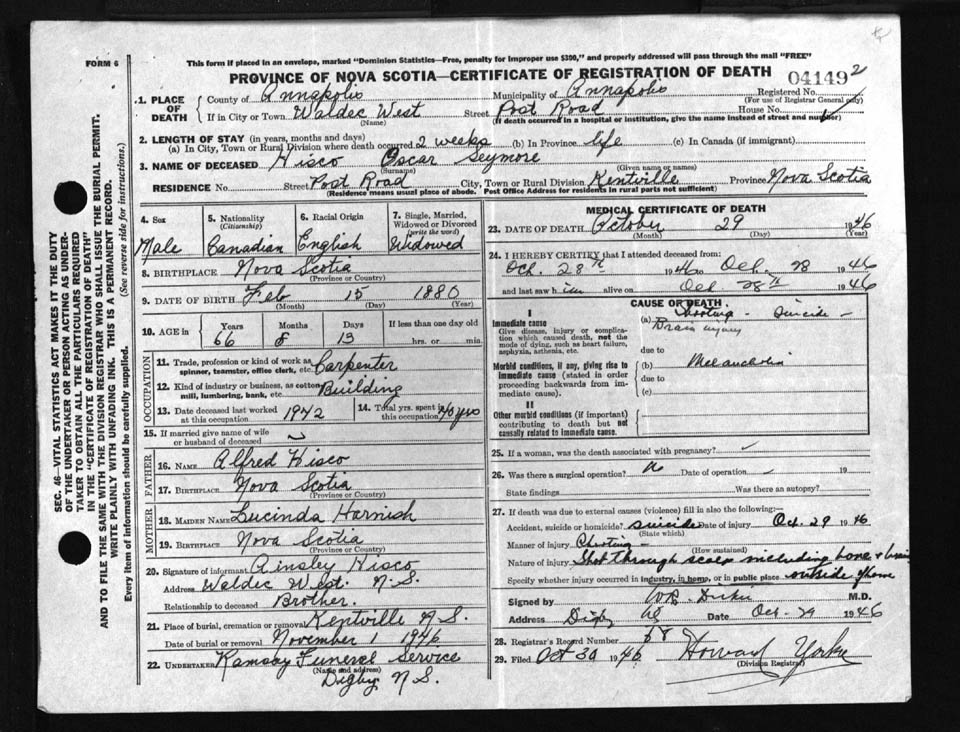 FORM 6
This form if placed in an envelope, marked "Dominion Statistics—Free, penalty for improper use $300," and properly addressed will pass through the mail "FREE"
PROVINCE OF NOVA SCOTIA—CERTIFICATE OF REGISTRATION OF DEATH
04149 2
1. PLACE OF DEATH
County of Annapolis Municipality of Annapolis Registered No.
(For use of Registrar General only)
If in City or Town Waldec West Street Post Road House No.
(Name) (If death occurred in a hospital or institution, give the name instead of street and number)
2. LENGTH OF STAY (in years, months and days)
(a) In City, Town or Rural Division where death occurred 2 weeks (b) In Province life (c) In Canada (if immigrant)
3. NAME OF DECEASED Hisco Oscar Seymore
(Surname) (Given name or names)
RESIDENCE No. Street Post Road City, Town or Rural Division Kentville Province Nova Scotia
(Residence means usual place of abode. Post Office Address for residents in rural parts not sufficient)
4. Sex
Male
5. Nationality
(Citizenship)
Canadian
6. Racial Origin
English
7. Single, Married, Widowed or Divorced
(write the word)
Widowed
8. BIRTHPLACE Nova Scotia
(Province or Country)
9. DATE OF BIRTH Feb 15 1880
(Month) (Day) (Year)
10. AGE in
Years Months Days If less than one day old
66 8 13 hrs. or min.
OCCUPATION
11. Trade, profession or kind of work as spinner, teamster, office clerk, etc. Carpenter
12. Kind of industry or business, as cotton mill, lumbering, bank, etc. Building
13. Date deceased last worked at this occupation 1942
14. Total yrs. spent in this occupation 40 yrs
15. If married give name of wife or husband of deceased
FATHER
16. NAME Alfred Hisco
17. BIRTHPLACE Nova Scotia
(Province or Country)
MOTHER
18. MAIDEN NAME Lucinda Harnish
19. BIRTHPLACE Nova Scotia
(Province or Country)
20. Signature of informant Ainsley Hisco
Address Waldec West. N.S.
Relationship to deceased Brother.
21. Place of burial, cremation or removal Kentville N.S.
Date of burial or removal November 1 1946
22. UNDERTAKER Ramsay Funeral Service
(Name and address)
Digby N.S.
MEDICAL CERTIFICATE OF DEATH
23. DATE OF DEATH October 29 1946
(Month) (Day) (Year)
24. I HEREBY CERTIFY that I attended deceased from:
Oct. 28th 1946 to Oct. 28 1946
and last saw him alive on Oct 28th 1946
CAUSE OF DEATH
I
Immediate cause
Give disease, injury or complication which caused death, not the mode of dying, such as heart failure, asphyxia, asthenia, etc.
(a) Shooting - Suicide -
Brain injury
due to
Morbid conditions, if any, giving rise to immediate cause (stated in order proceeding backwards from immediate cause).
(b) Melancholia
due to
(c)
II
Other morbid conditions (if important) contributing to death but not causally related to immediate cause.
25. If a woman, was the death associated with pregnancy?
26. Was there a surgical operation? No Date of operation 19
State findings Was there an autopsy?
27. If death was due to external causes (violence) fill in also the following:
Accident, suicide or homicide? Suicide Date of injury Oct. 29 1946
(State which)
Manner of injury Shooting -
(How sustained)
Nature of injury Shot through scalp including bone & brain
Specify whether injury occurred in industry, in home, or in public place outside of home
Signed by M.D.
Address Digby NS Date Oct-29 1946
28. Registrar's Record Number 58
29. Filed Oct 30 1946 Howard Yorke
(Division Registrar)
SEC. 46—VITAL STATISTICS ACT MAKES IT THE DUTY
OF THE UNDERTAKER OR PERSON ACTING AS UNDER-
TAKER TO OBTAIN ALL THE PARTICULARS REQUIRED
IN THE "CERTIFICATE OF REGISTRATION OF DEATH"
AND TO FILE THE SAME WITH THE DIVISION REGISTRAR WHO SHALL ISSUE THE BURIAL PERMIT.
WRITE PLAINLY WITH UNFADING INK. THIS IS A PERMANENT RECORD.
Every item of information should be carefully supplied. (See reverse side for instructions.)